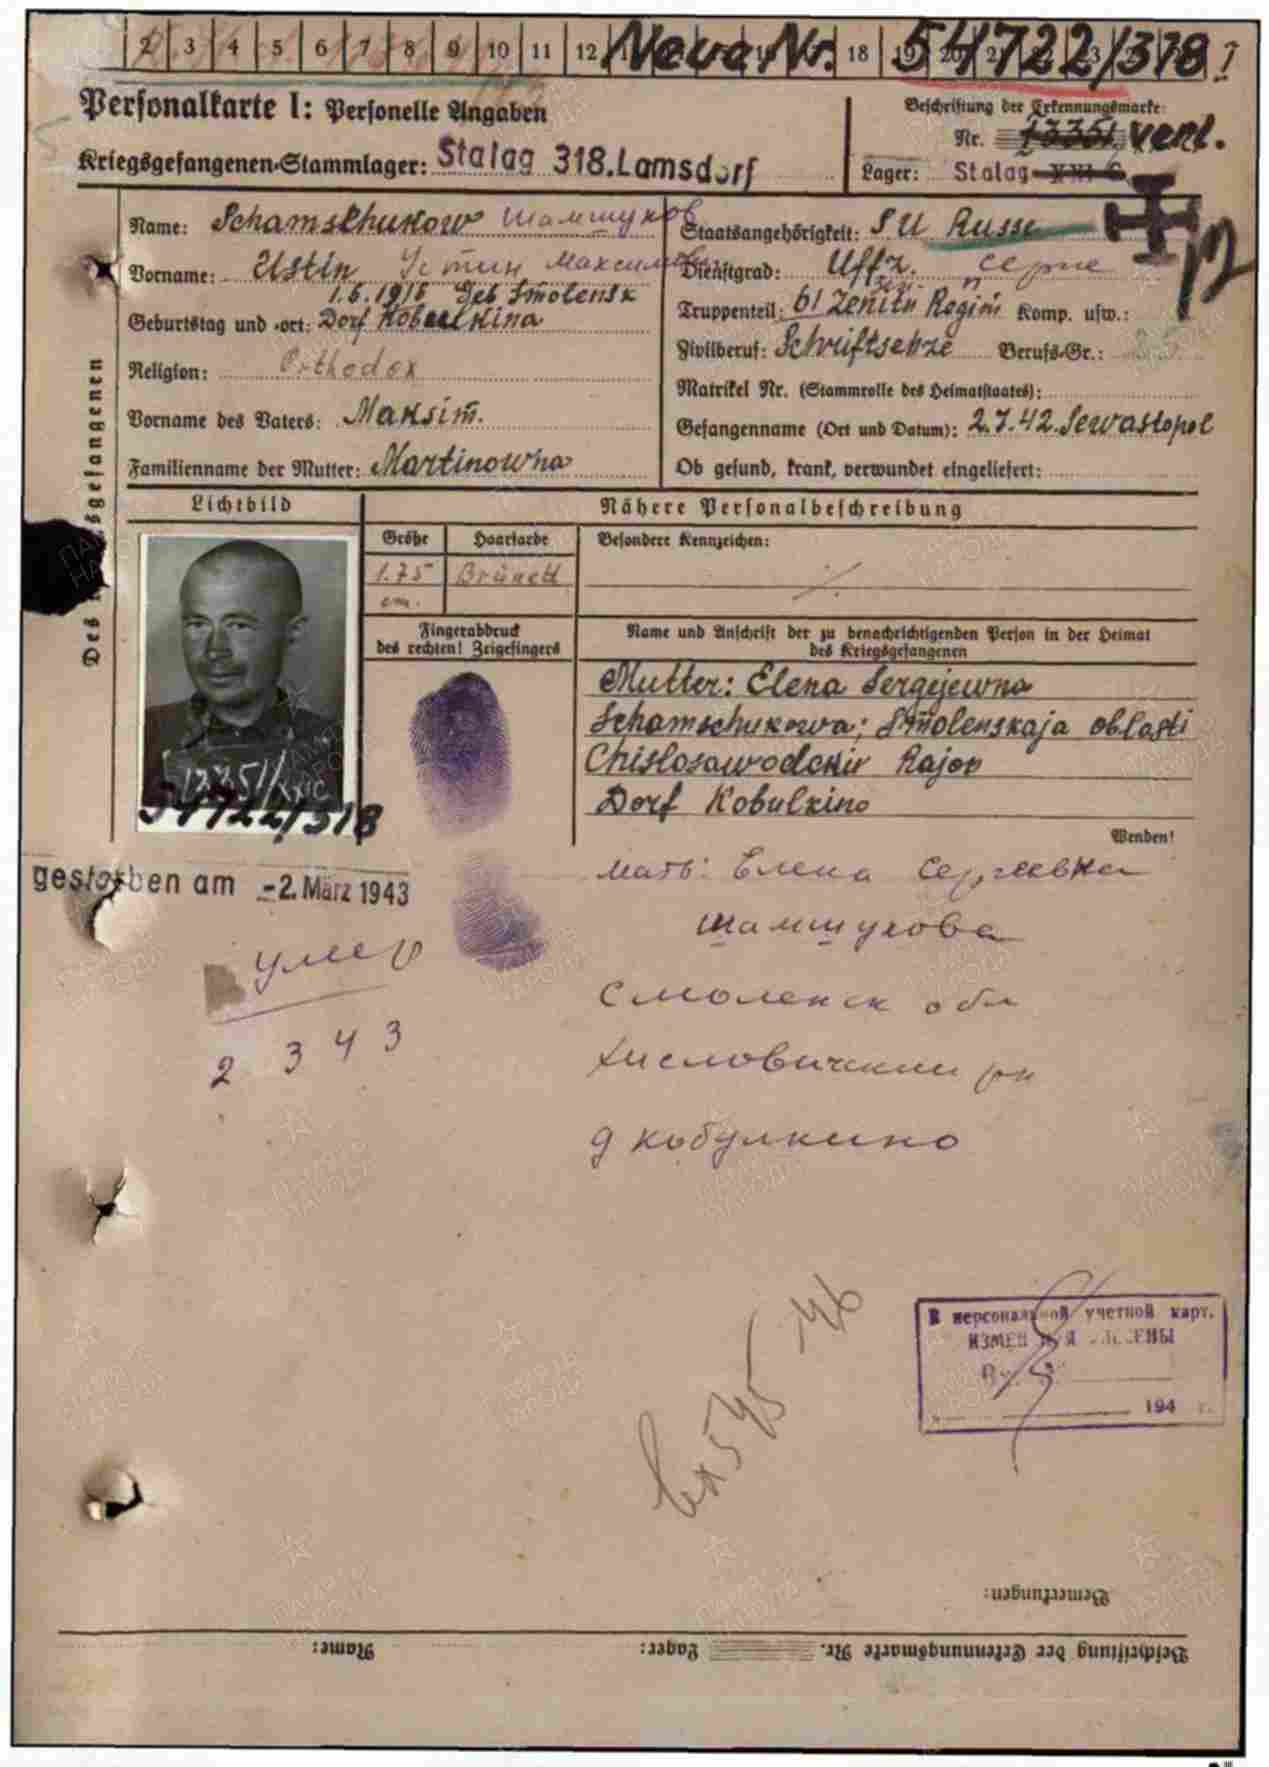 2 3 4 5 6 7 8 9 10 11 12 Neue Nr. 18 54722/318
Personalkarte I: Personelle Angaben
Kriegsgefangenen-Stammlager: Stalag 318. Lamsdorf
Beschriftung der Erkennungsmarke:
Nr. 13351 verl.
Lager: Stalag XXI C
Des Kriegsgefangenen
Name: Schamschukow Шамшуков
Vorname: Ustin Устин Максимович
1.6.1916 Geb Smolensk
Geburtstag und -ort: Dorf Kobulkina
Religion: Orthodox
Vorname des Vaters: Maksim.
Familienname der Mutter: Martinowna
Staatsangehörigkeit: SU Russe
Dienstgrad: Uffz.
Truppenteil: 61 Zenitn Regim Komp. usw.:
Zivilberuf: Schriftsetze Berufs-Gr.:
Matrikel Nr. (Stammrolle des Heimatstaates):
Gefangenname (Ort und Datum): 2.7.42. Sewastopol
Ob gesund, krank, verwundet eingeliefert:
Lichtbild
Nähere Personalbeschreibung
Größe Haarfarbe Besondere Kennzeichen:
1.75 Brünett
cm.
Fingerabdruck
des rechten! Zeigefingers
Name und Anschrift der zu benachrichtigenden Person in der Heimat
des Kriegsgefangenen
Mutter: Elena Sergejewna
Schamschukowa; Smolenskaja oblasti
Chislosawodskii Rajon
Dorf Kobulkino
Wenden!
13351/XXIC
54722/318
gestorben am -2. März 1943
умер
2 3 43
мать: Елена Сергеевна
Шамшукова
Смоленск обл
Хисловичский рн
д Кобулкино
вх 545 46
В персональной учетной карт.
ИЗМЕНЕНИЯ ВНЕСЕНЫ
194 г.
Bemerkungen:
Name: Lager: Beschriftung der Erkennungsmarke Nr.